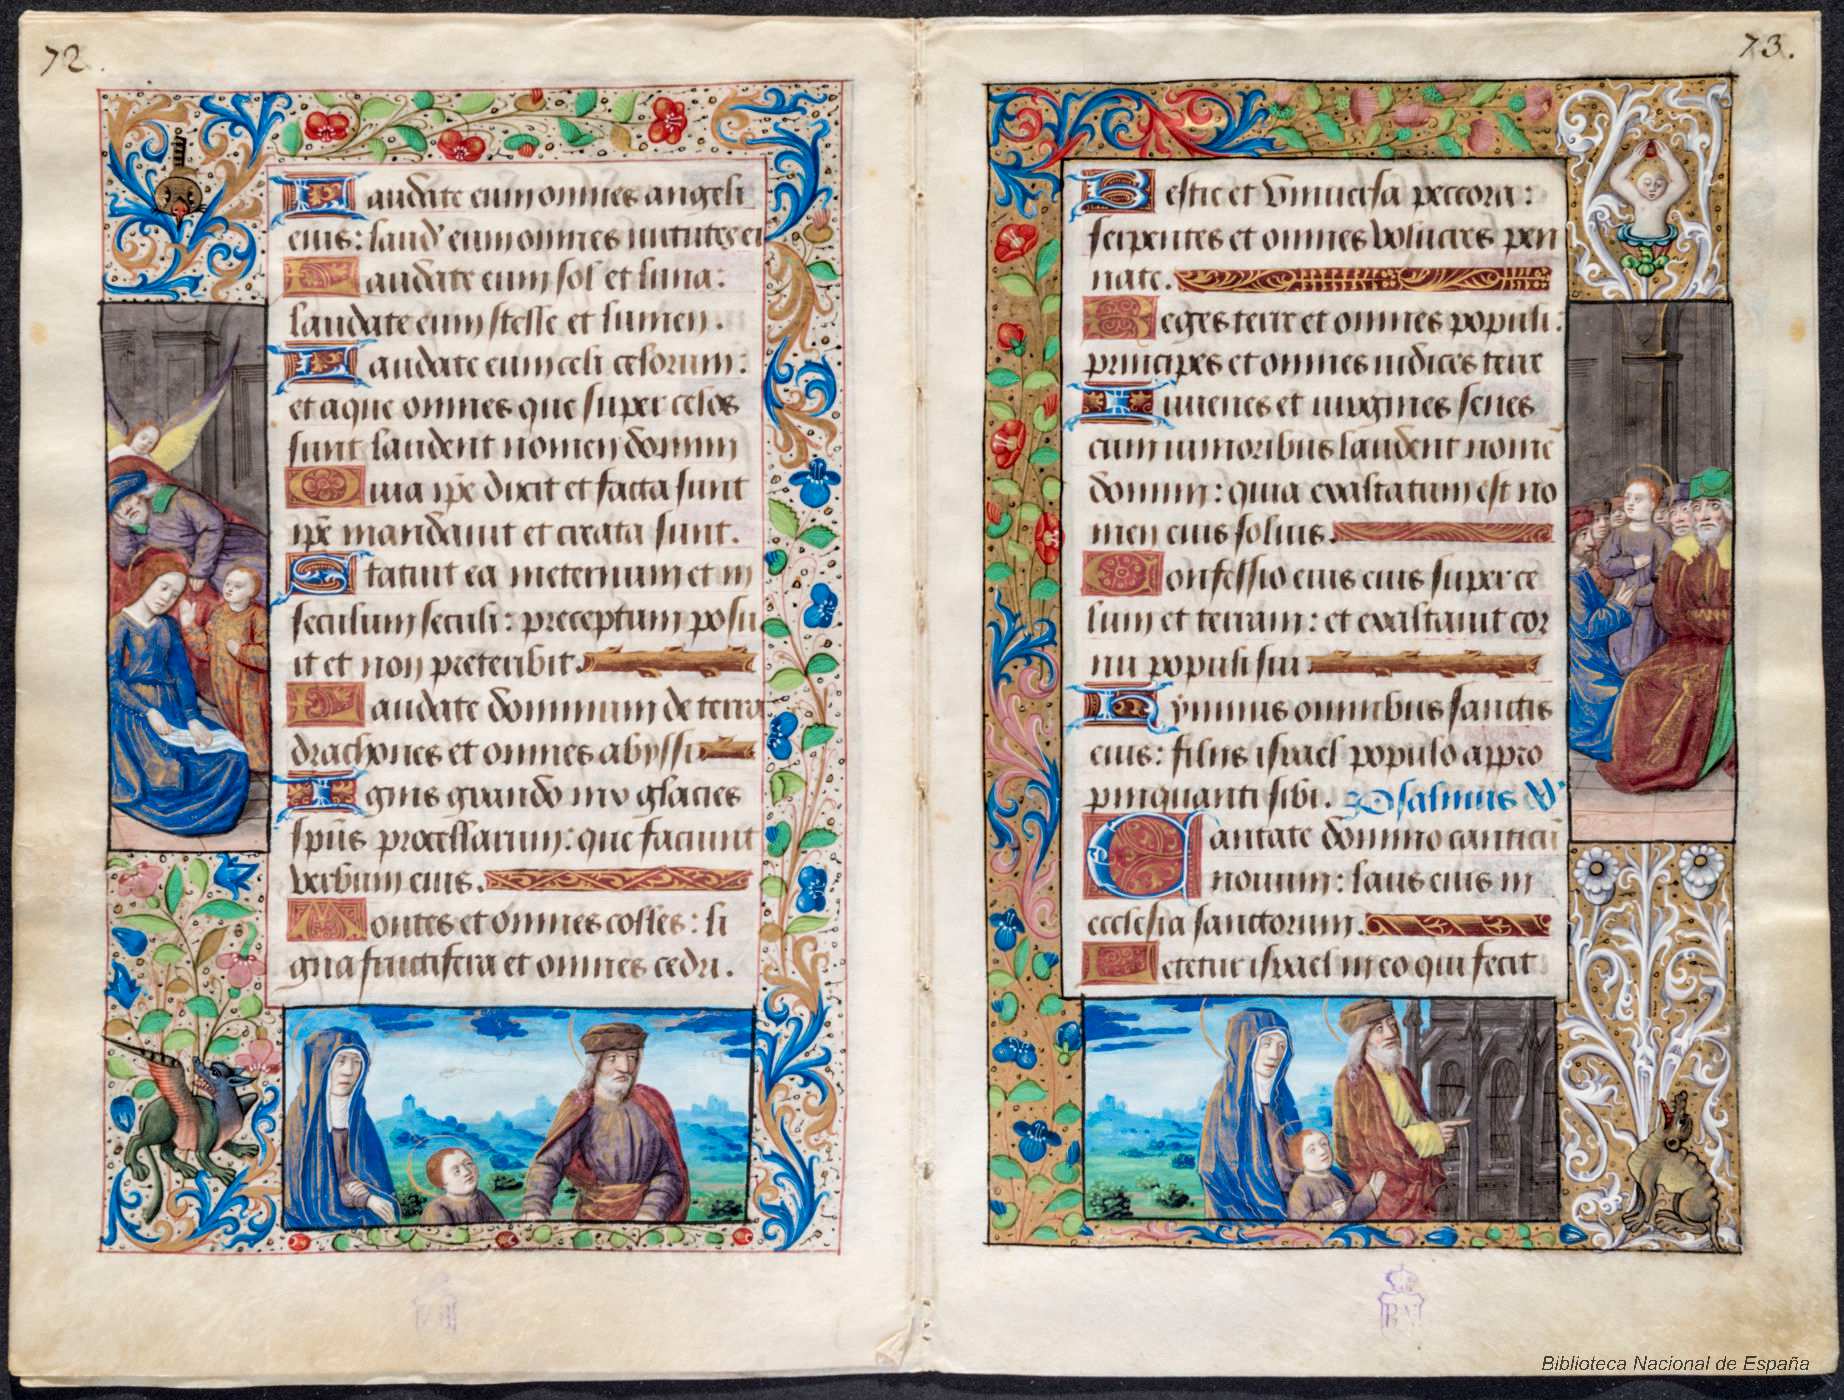 72.
Laudate eum omnes angeli
eius: laud' eum omnes uirtutes ei
Laudate eum sol et luna:
laudate eum stelle et lumen.
Laudate eum celi celorum:
et aque omnes que super celos
sunt laudent nomen domini
Quia ip̄e dixit et facta sunt
ip̄e mandauit et creata sunt.
Statuit ea ineternum et in
seculum seculi: preceptum posu
it et non preteribit.
Laudate dominum de terra
drachones et omnes abyssi
Ignis grando nix glacies
sp̄us procellarum: que faciunt
verbum eius.
Montes et omnes colles: li
gna fructifera et omnes cedri.
73.
Bestie et vniuersa peccora:
serpentes et omnes volucres pen
nate.
Reges terre et omnes populi:
principes et omnes iudices terre
Iuuenes et uirgines senes
cum iunioribus laudent nomē
domini: quia exaltatum est no
men eius solius.
Confessio eius eius super ce
lum et terram: et exaltauit cor
nu populi sui
Hymnus omnibus sanctis
eius: filiis israel populo appro
pinquanti sibi. Psalmus
Cantate domino canticū
nouum: laus eius in
ecclesia sanctorum.
Letetur israel in eo qui fecit
BN
Biblioteca Nacional de España